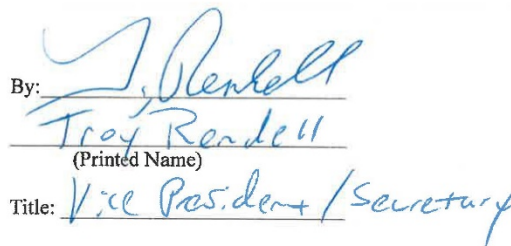 By: T. Rendell
Troy Rendell
(Printed Name)
Title: Vice President / Secretary